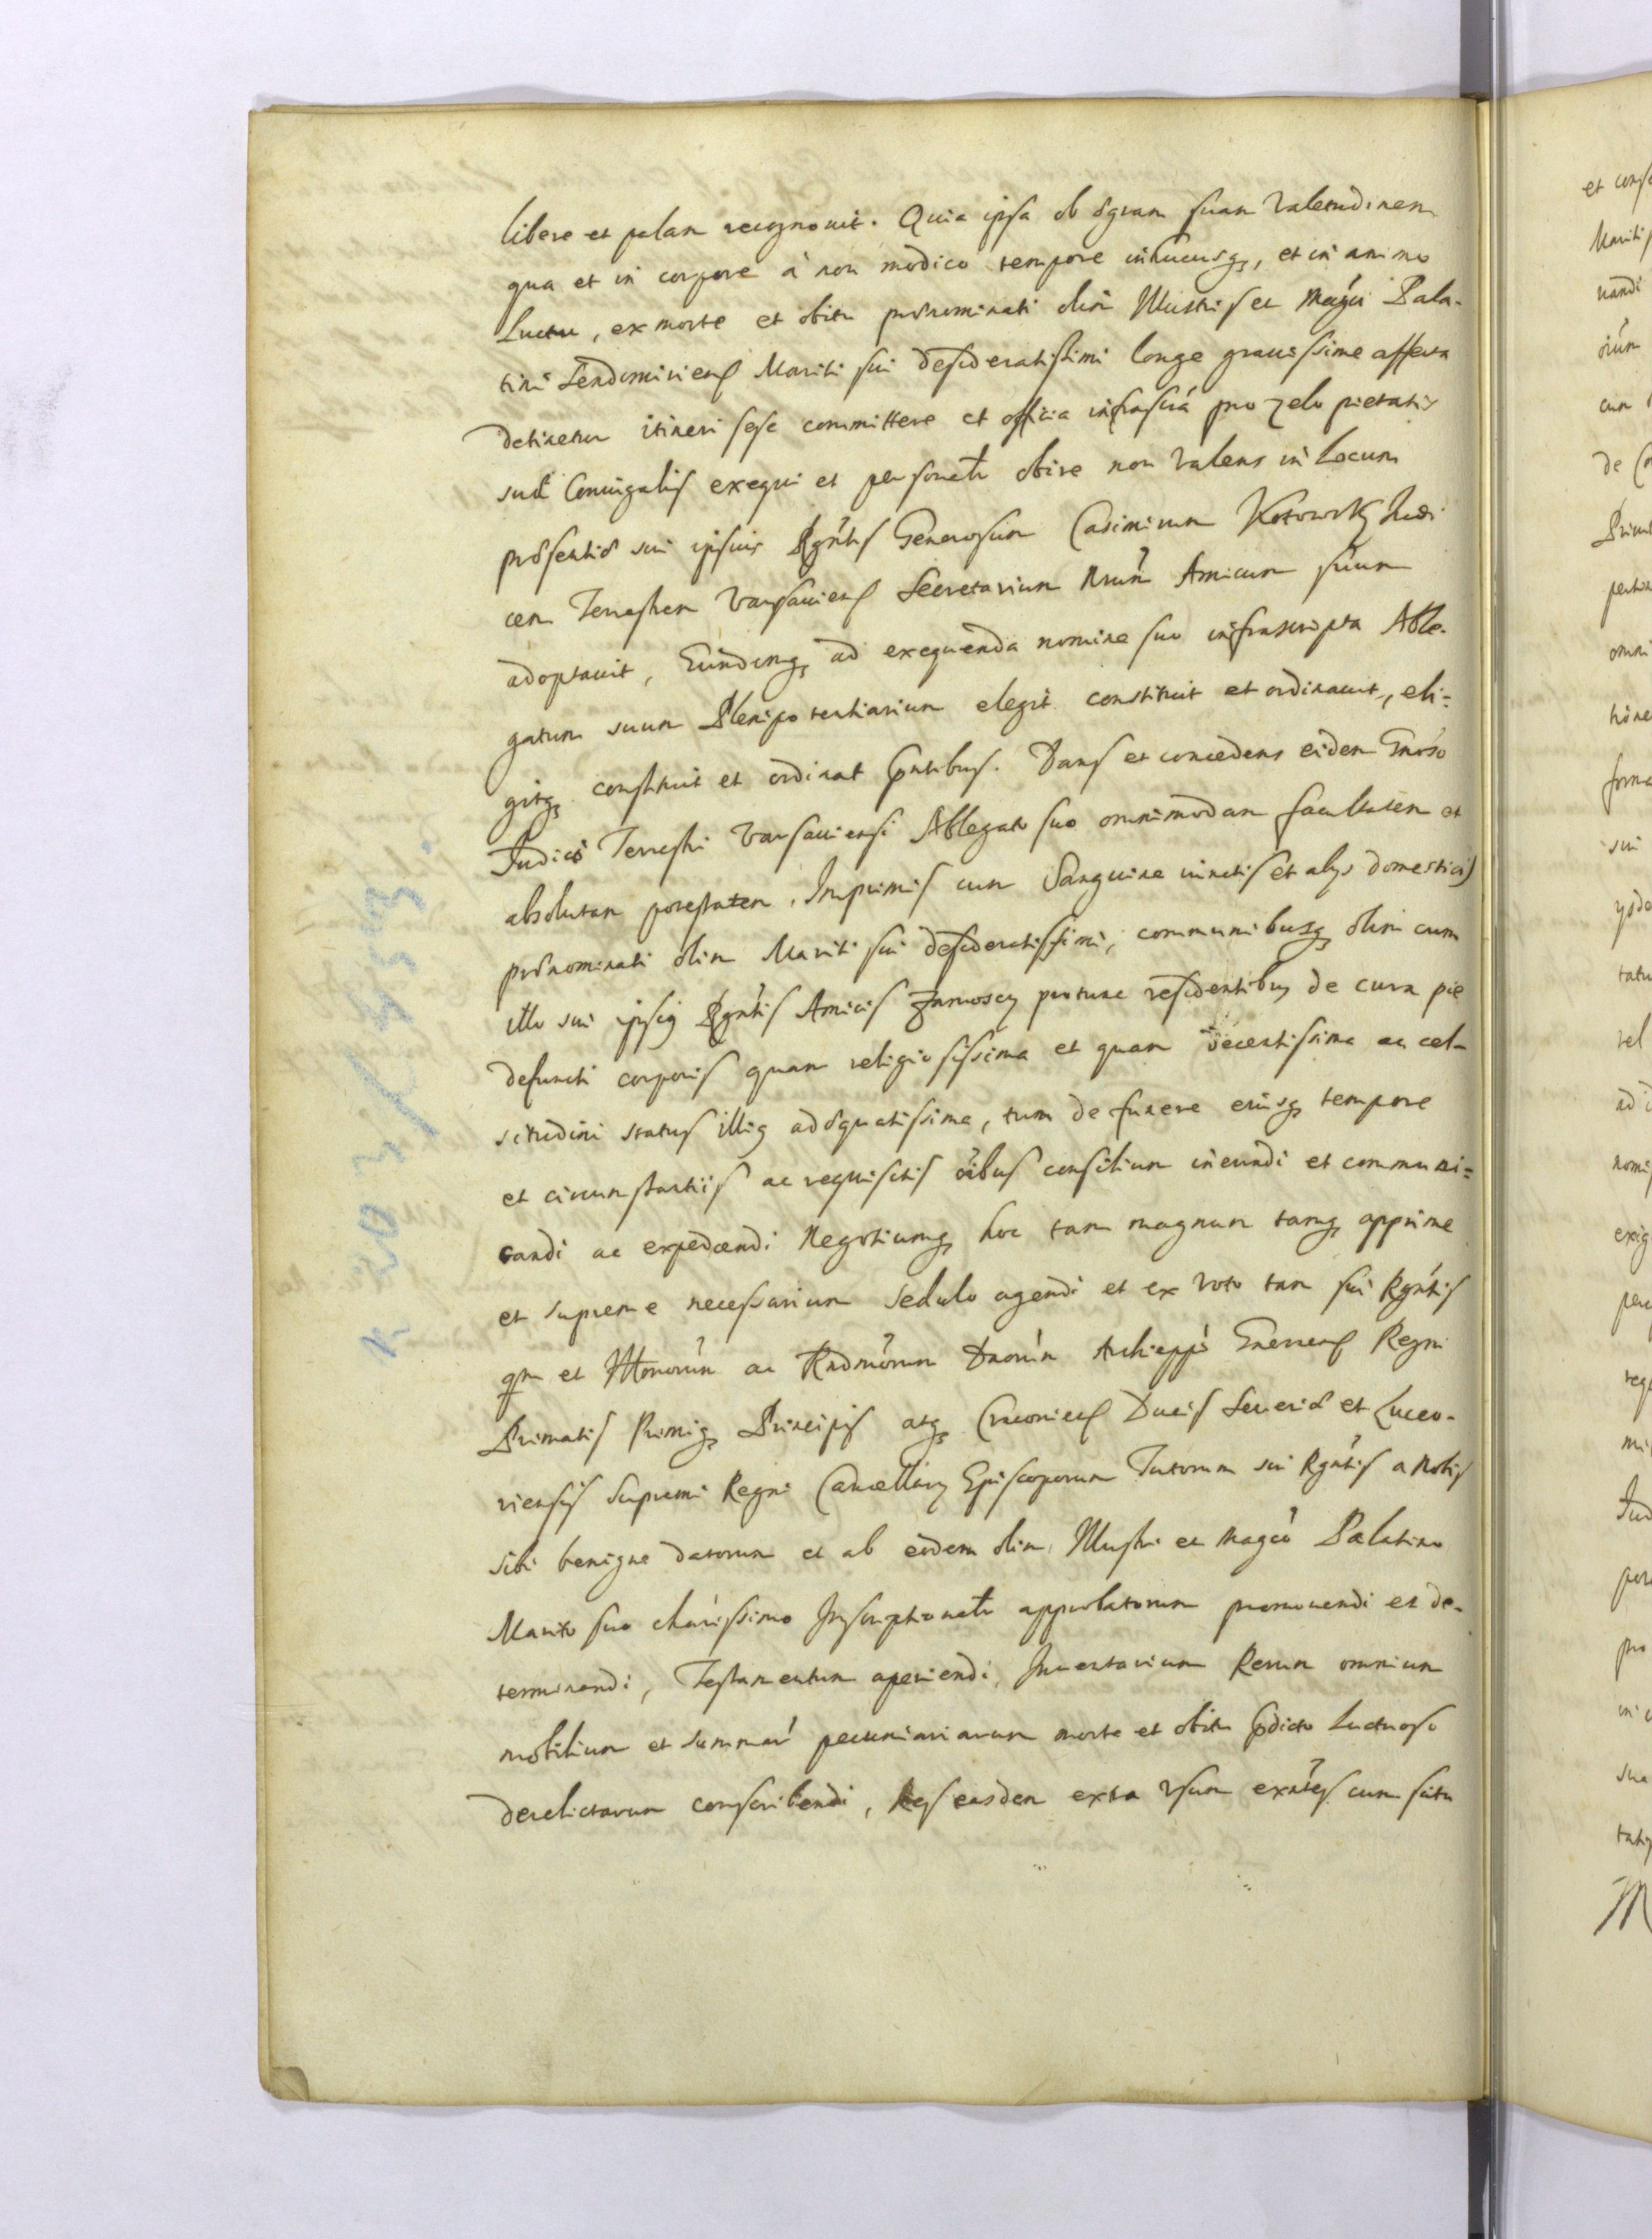 libere et palam recognovit. Quia ipsa ob ægram suam Valetudinem
qua et in corpore à non modico tempore inhucusq₃, et in animo
Luctu, ex morte et obitu prænominati olim Illustris et Magci Pala-
tini Sendomiriens Mariti sui desideratissimi longe grauissime affecta
detinetur itineri sese committere et officia infrascrá pro zelo pietatis
suæ Coniugalis exequi et personalr obire non Valens in Locum
præsentiæ sui ipsius Rgntis Generosum Casimirum Kotowsky Judi
cem Terrestrem Varsauiens Secretarium Nrum Amicum suum
adoptauit, Eundemq₃ ad exequenda nomine suo infrascripta Able-
gatum suum Plenipotentiarium elegit constituit et ordinauit, eli=
gitq₃ constituit et ordinat Pntibus. Dans et concedens eidem Gnoso
Judici Terrestri Varsauiensi Ablegato suo omnimodam facultatem et
absolutam potestatem. Inprimis cum Sanguine iunctis et alys domesticis
prænominati olim Mariti sui desideratissimi, communibusq₃ olim cum
illo sui ipsig Rgntis Amicis Zamoscy protunc residentibus de cura pie
defuncti corporis quam religiosissima et quam decentissima ac cel-
situdini status illig adæquatissima, tum de funere eiusq₃ tempore
et circumstantiis ac requisitis oibus consilium ineundi et communi=
candi ac expediendi Negotiumq₃ hoc tam magnum tamq₃ apprime
et supreme necessarium sedulo agendi et ex Voto tam sui Rgntis
qm et Illmorum ac Rndmorum Dnorum Archieppi Gnesnens Regni
Primatis Primiq₃ Principis atq₃ Cracoviens Ducis Seueriæ et Luceo-
riensis Supremi Regni Cancellary Episcoporum Tutorum sui Rgntis a Nobis
sibi benigne datorum et ab eodem olim Illustri et Magco Palatino
Marito suo charissimo Inscriptionalr approbatorum promouendi et de-
terminandi, Testamentum aperiendi, Inuentarium Rerum omnium
mobilium et summar pecuniariarum morte et obitu Pdicto Luctuoso
derelictarum conscribendi, Res easdem extra Vsum exntes cum situ